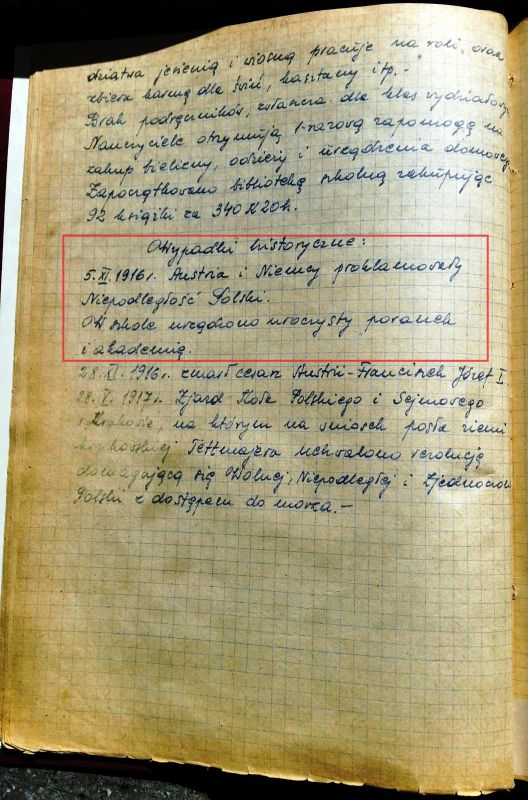 dziatwa jesienią i wiosną pracuje na roli, oraz
zbiera karmę dla świń, kasztany itp.-
Brak podręczników, zwłaszcza dla klas wydziałowych
Nauczyciele otrzymują 1-razową zapomogę na
zakup bielizny, odzieży i urządzenia domowego
Zapoczątkowano bibliotekę szkolną zakupując
92 książki za 340 K 20 h.
Wypadki historyczne:
5.XI.1916r. Austria i Niemcy proklamowały
Niepodległość Polski.
W szkole urządzono uroczysty poranek
i akademię.
28.XI.1916r. zmarł cesarz Austrii-Franciszek Józef I
28.V.1917r. Zjazd Koła Polskiego i Sejmowego
w Krakowie, na którym na wniosek posła ziemi
krakowskiej Tettmajera uchwalono rezolucję
domagającą się Wolnej, Niepodległej i Zjednoczon
Polski z dostępem do morza.-